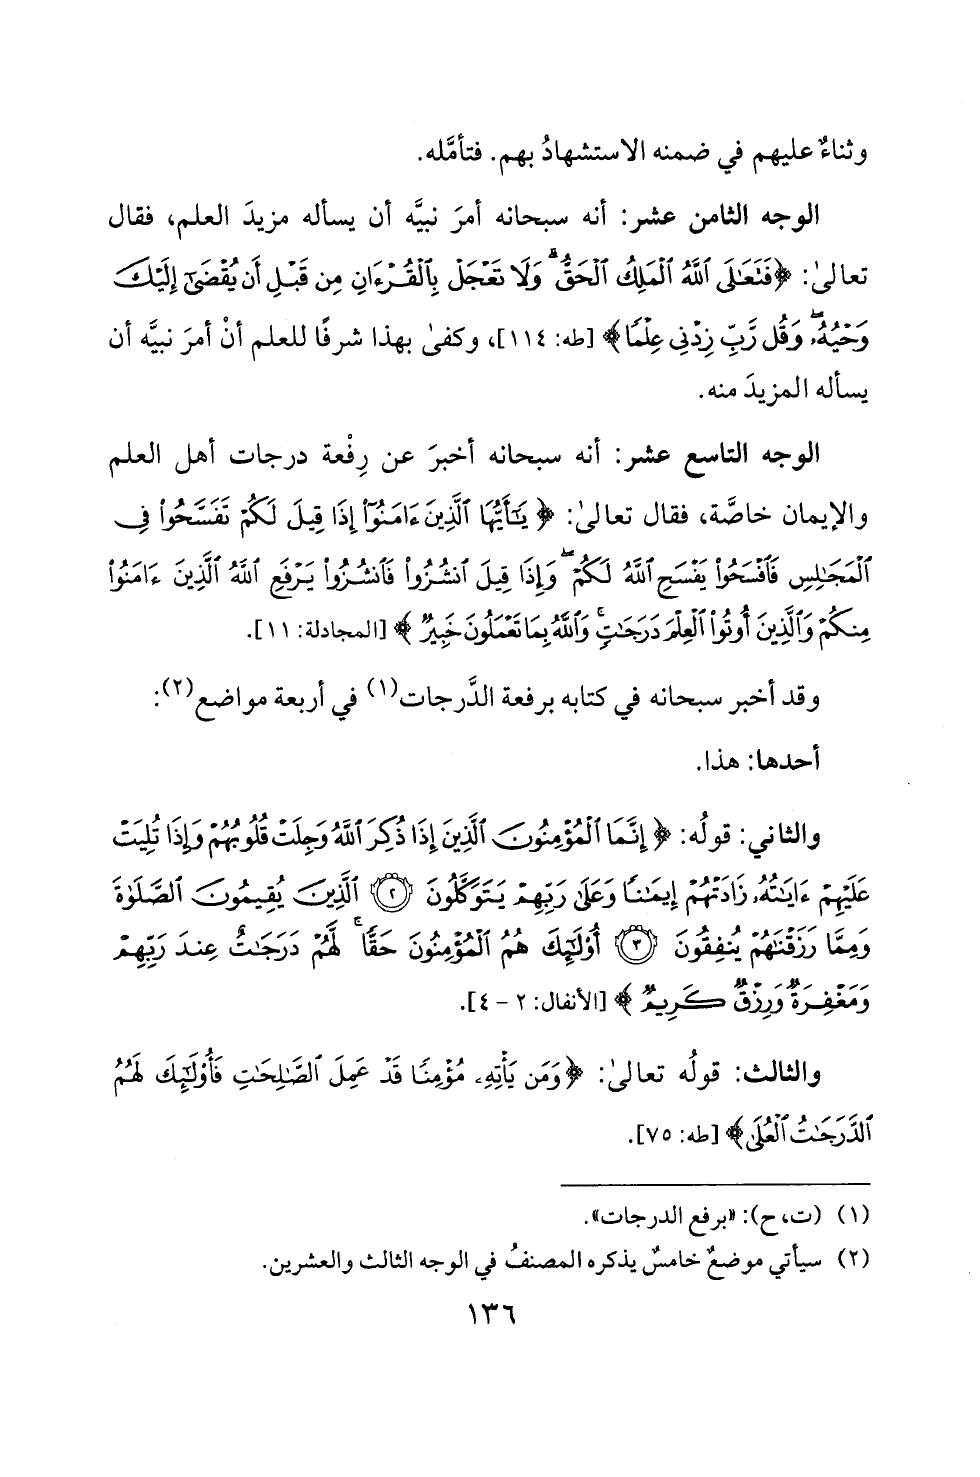 وثناءٌ عليهم في ضمنه الاستشهادُ بهم. فتأمَّله.
الوجه الثامن عشر: أنه سبحانه أمرَ نبيَّه أن يسأله مزيدَ العلم، فقال
تعالىٰ: ﴿فَتَعَٰلَى ٱللَّهُ ٱلْمَلِكُ ٱلْحَقُّ ۗ وَلَا تَعْجَلْ بِٱلْقُرْءَانِ مِن قَبْلِ أَن يُقْضَىٰٓ إِلَيْكَ
وَحْيُهُۥ ۖ وَقُل رَّبِّ زِدْنِى عِلْمًا﴾ [طه: ١١٤]، وكفىٰ بهذا شرفًا للعلم أنْ أمرَ نبيَّه أن
يسأله المزيدَ منه.
الوجه التاسع عشر: أنه سبحانه أخبرَ عن رِفْعة درجات أهل العلم
والإيمان خاصَّة، فقال تعالىٰ: ﴿يَٰٓأَيُّهَا ٱلَّذِينَ ءَامَنُوٓا۟ إِذَا قِيلَ لَكُمْ تَفَسَّحُوا۟ فِى
ٱلْمَجَٰلِسِ فَٱفْسَحُوا۟ يَفْسَحِ ٱللَّهُ لَكُمْ ۖ وَإِذَا قِيلَ ٱنشُزُوا۟ فَٱنشُزُوا۟ يَرْفَعِ ٱللَّهُ ٱلَّذِينَ ءَامَنُوا۟
مِنكُمْ وَٱلَّذِينَ أُوتُوا۟ ٱلْعِلْمَ دَرَجَٰتٍ ۚ وَٱللَّهُ بِمَا تَعْمَلُونَ خَبِيرٌ﴾ [المجادلة: ١١].
وقد أخبر سبحانه في كتابه برفعة الدَّرجات(١) في أربعة مواضع(٢):
أحدها: هذا.
والثاني: قولُه: ﴿إِنَّمَا ٱلْمُؤْمِنُونَ ٱلَّذِينَ إِذَا ذُكِرَ ٱللَّهُ وَجِلَتْ قُلُوبُهُمْ وَإِذَا تُلِيَتْ
عَلَيْهِمْ ءَايَٰتُهُۥ زَادَتْهُمْ إِيمَٰنًا وَعَلَىٰ رَبِّهِمْ يَتَوَكَّلُونَ ۝٢ ٱلَّذِينَ يُقِيمُونَ ٱلصَّلَوٰةَ
وَمِمَّا رَزَقْنَٰهُمْ يُنفِقُونَ ۝٣ أُو۟لَٰٓئِكَ هُمُ ٱلْمُؤْمِنُونَ حَقًّا ۚ لَّهُمْ دَرَجَٰتٌ عِندَ رَبِّهِمْ
وَمَغْفِرَةٌ وَرِزْقٌ كَرِيمٌ﴾ [الأنفال: ٢ - ٤].
والثالث: قولُه تعالىٰ: ﴿وَمَن يَأْتِهِۦ مُؤْمِنًا قَدْ عَمِلَ ٱلصَّٰلِحَٰتِ فَأُو۟لَٰٓئِكَ لَهُمُ
ٱلدَّرَجَٰتُ ٱلْعُلَىٰ﴾ [طه: ٧٥].
(١) (ت، ح): «برفع الدرجات».
(٢) سيأتي موضعٌ خامسٌ يذكره المصنفُ في الوجه الثالث والعشرين.
١٣٦